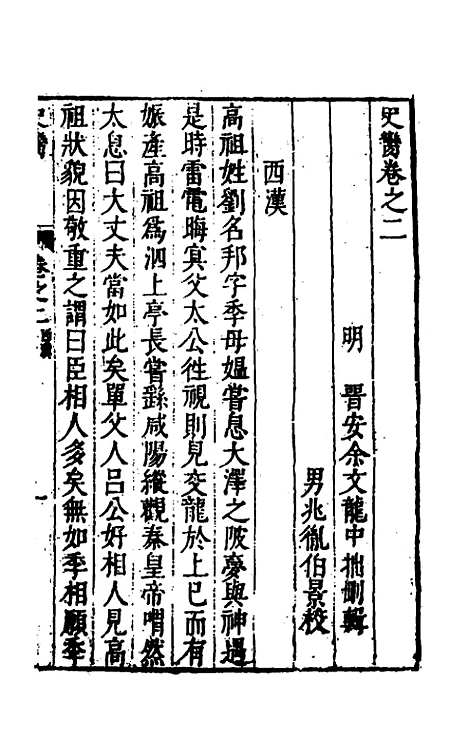 史臠卷之二
明　晉安余文龍中拙刪輯
男兆胤伯景校
西漢
高祖姓劉名邦字季母媼嘗息大澤之陂夢與神遇
是時雷電晦寘父太公徃視則見交龍於上已而有
娠產高祖爲泗上亭長嘗繇咸陽縱觀秦皇帝喟然
太息曰大丈夫當如此矣單父人呂公好相人見高
祖狀貌因敬重之謂曰臣相人多矣無如季相願季
史臠
卷之二
西漢
一